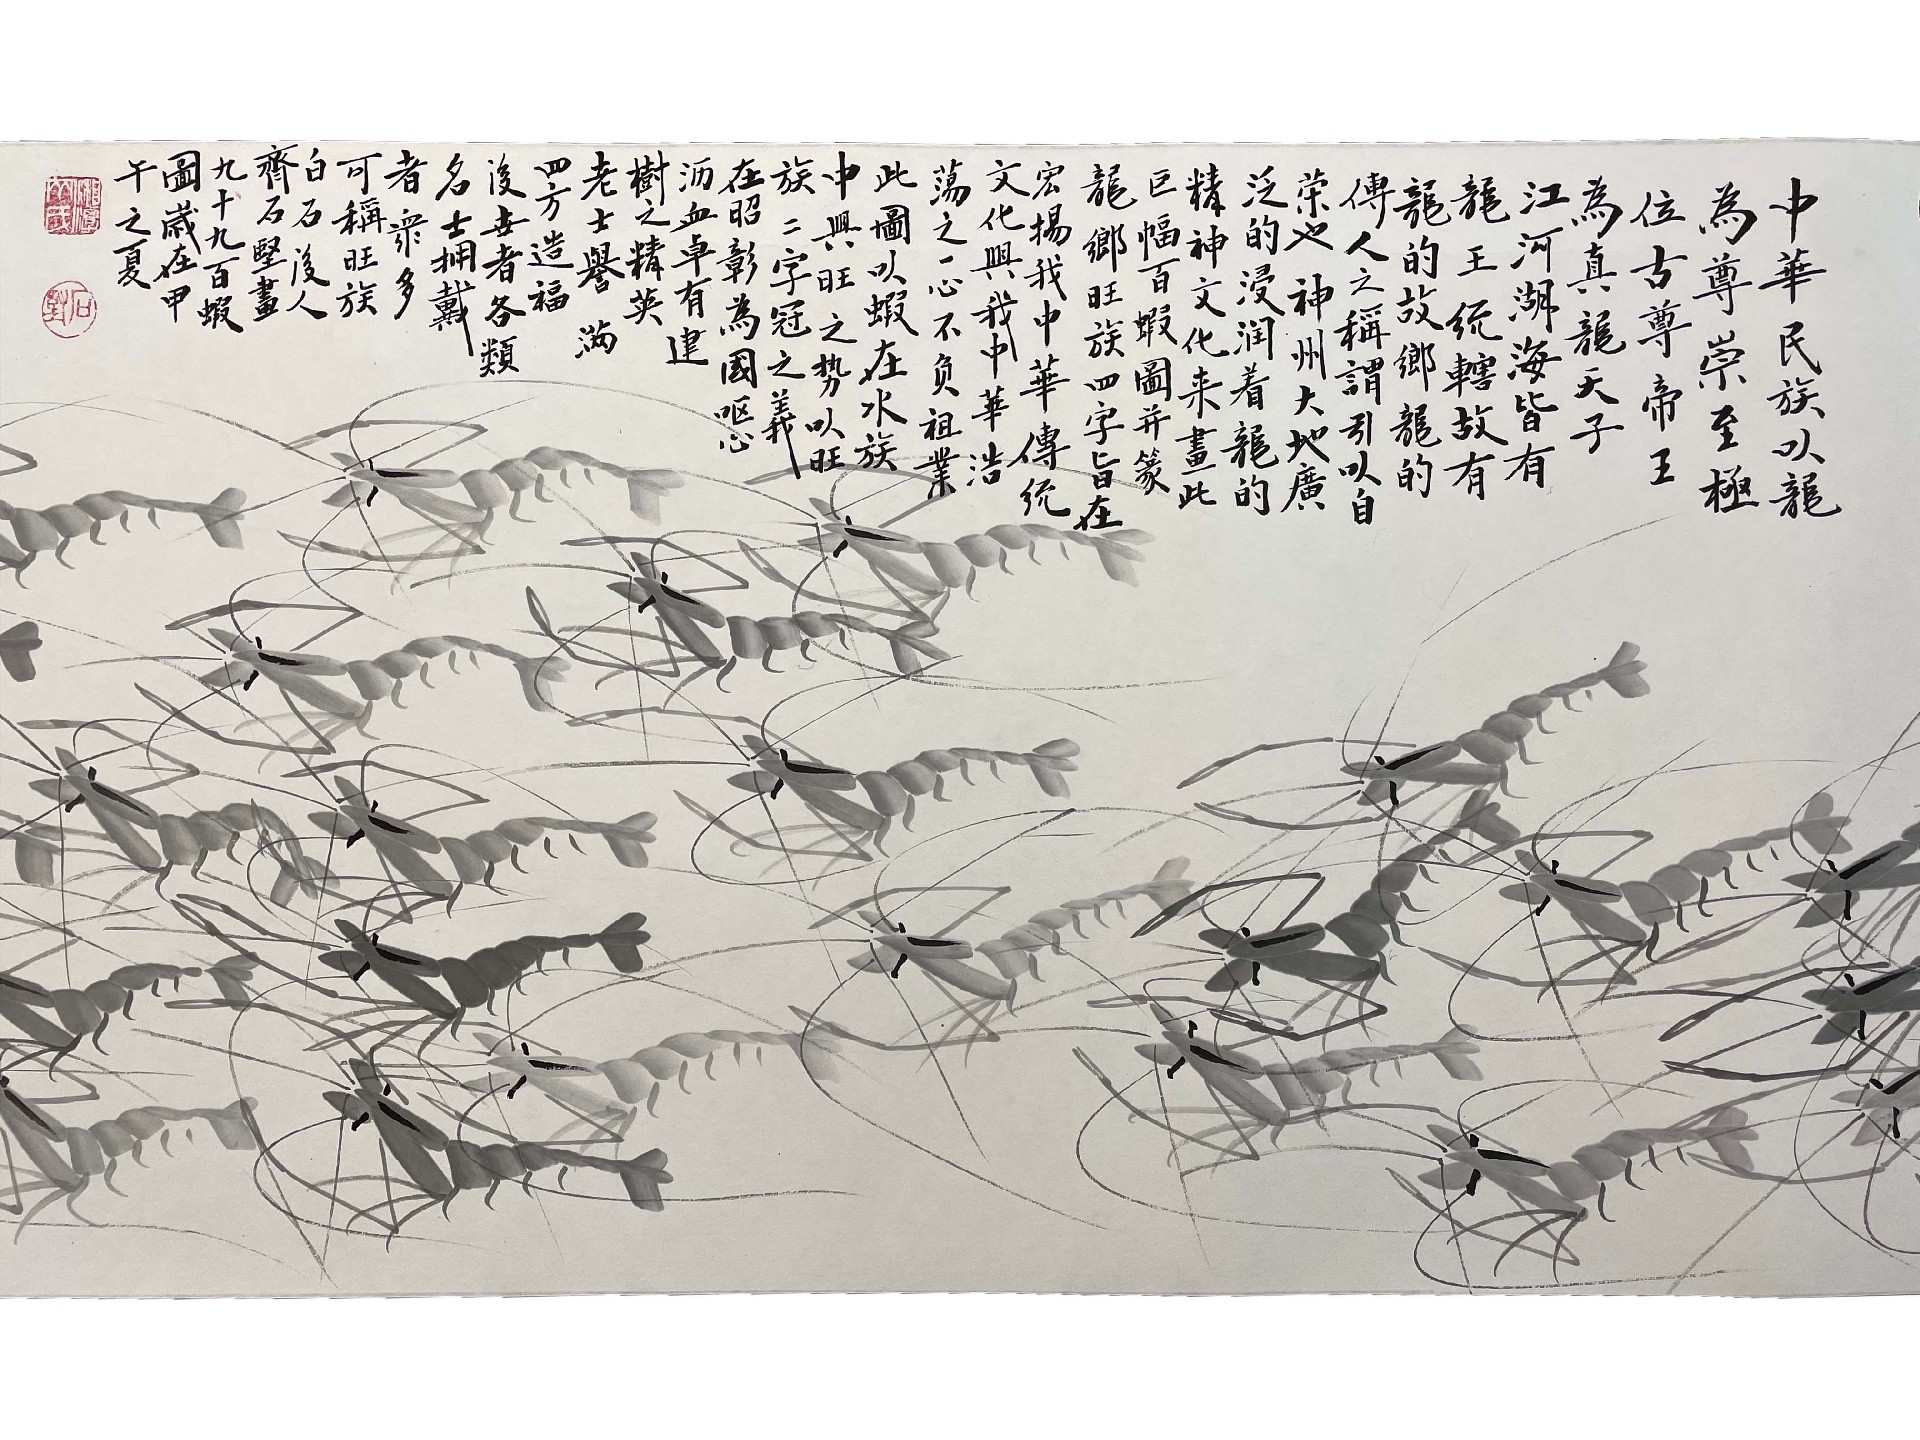 中華民族以龍
為尊崇至極
位古尊帝王
為真龍天子
江河湖海皆有
龍王統轄故有
龍的故鄉龍的
傳人之稱謂引以自
荣也神州大地廣
泛的浸润着龍的
精神文化来畫此
巨幅百蝦圖并篆
龍鄉旺族四字旨在
宏揚我中華傳統
文化興我中華浩
蕩之心不负祖業
此圖以蝦在水族
中興旺之势以旺
族二字冠之義
在昭彰為國呕心
沥血卓有建
樹之精英
老士譽满
四方造福
後世者各類
名士拥戴
者眾多
可稱旺族
白石後人
齊石堅畫
九十九百蝦
圖歲在甲
午之夏